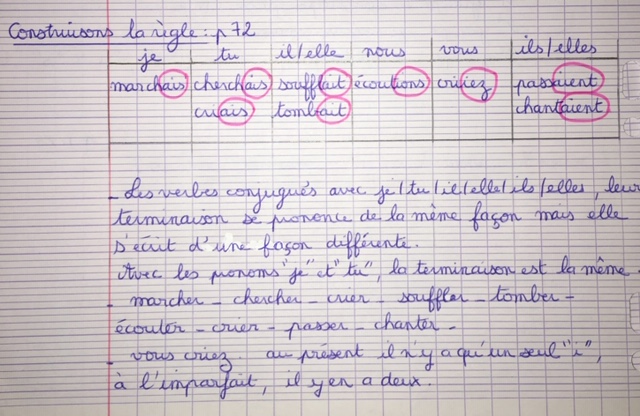 Construisons la règle : p 72
je tu il/elle nous vous ils/elles
marchais cherchais soufflait écoutions criiez passaient
criais tombait chantaient
- Les verbes conjugués avec je/tu/il/elle/ils/elles, leur
terminaison se prononce de la même façon mais elle
s'écrit d'une façon différente.
Avec les pronoms "je" et "tu", la terminaison est la même.
- marcher - chercher - crier - souffler - tomber -
écouter - crier - passer - chanter -
- vous criez au présent il n'y a qu'un seul "i",
à l'imparfait, il y en a deux.